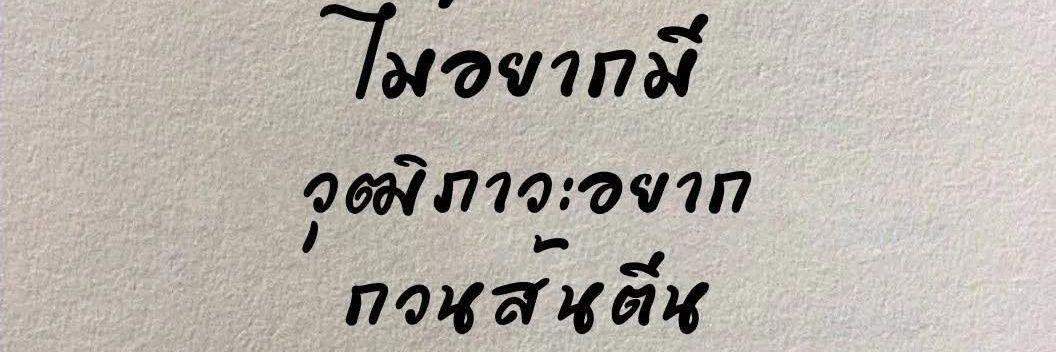 ไม่อยากมี
วุฒิภาวะอยาก
กวนส้นตีน